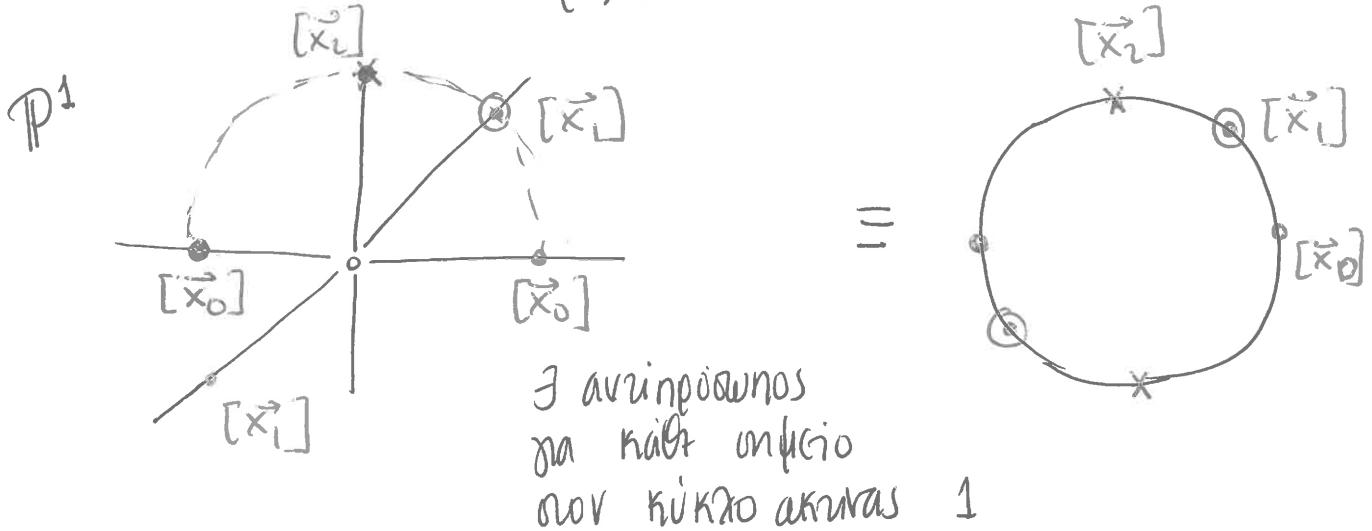 [x⃗₂]
ℙ¹
[x⃗₁]
[x⃗₀]
[x⃗₀]
[x⃗₁]
≡
[x⃗₂]
[x⃗₁]
[x⃗₀]
∃ αντιπρόσωπος
για κάθε σημείο
στον κύκλο ακτίνας 1